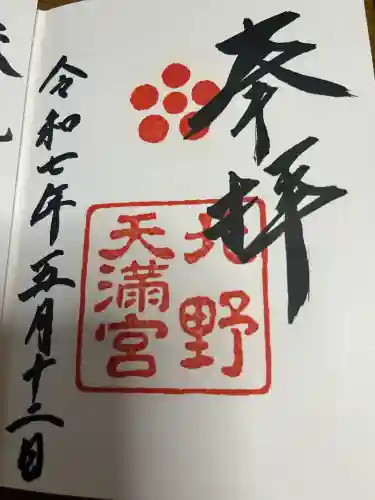 奉拝
北野
天満宮
令和七年五月十二日